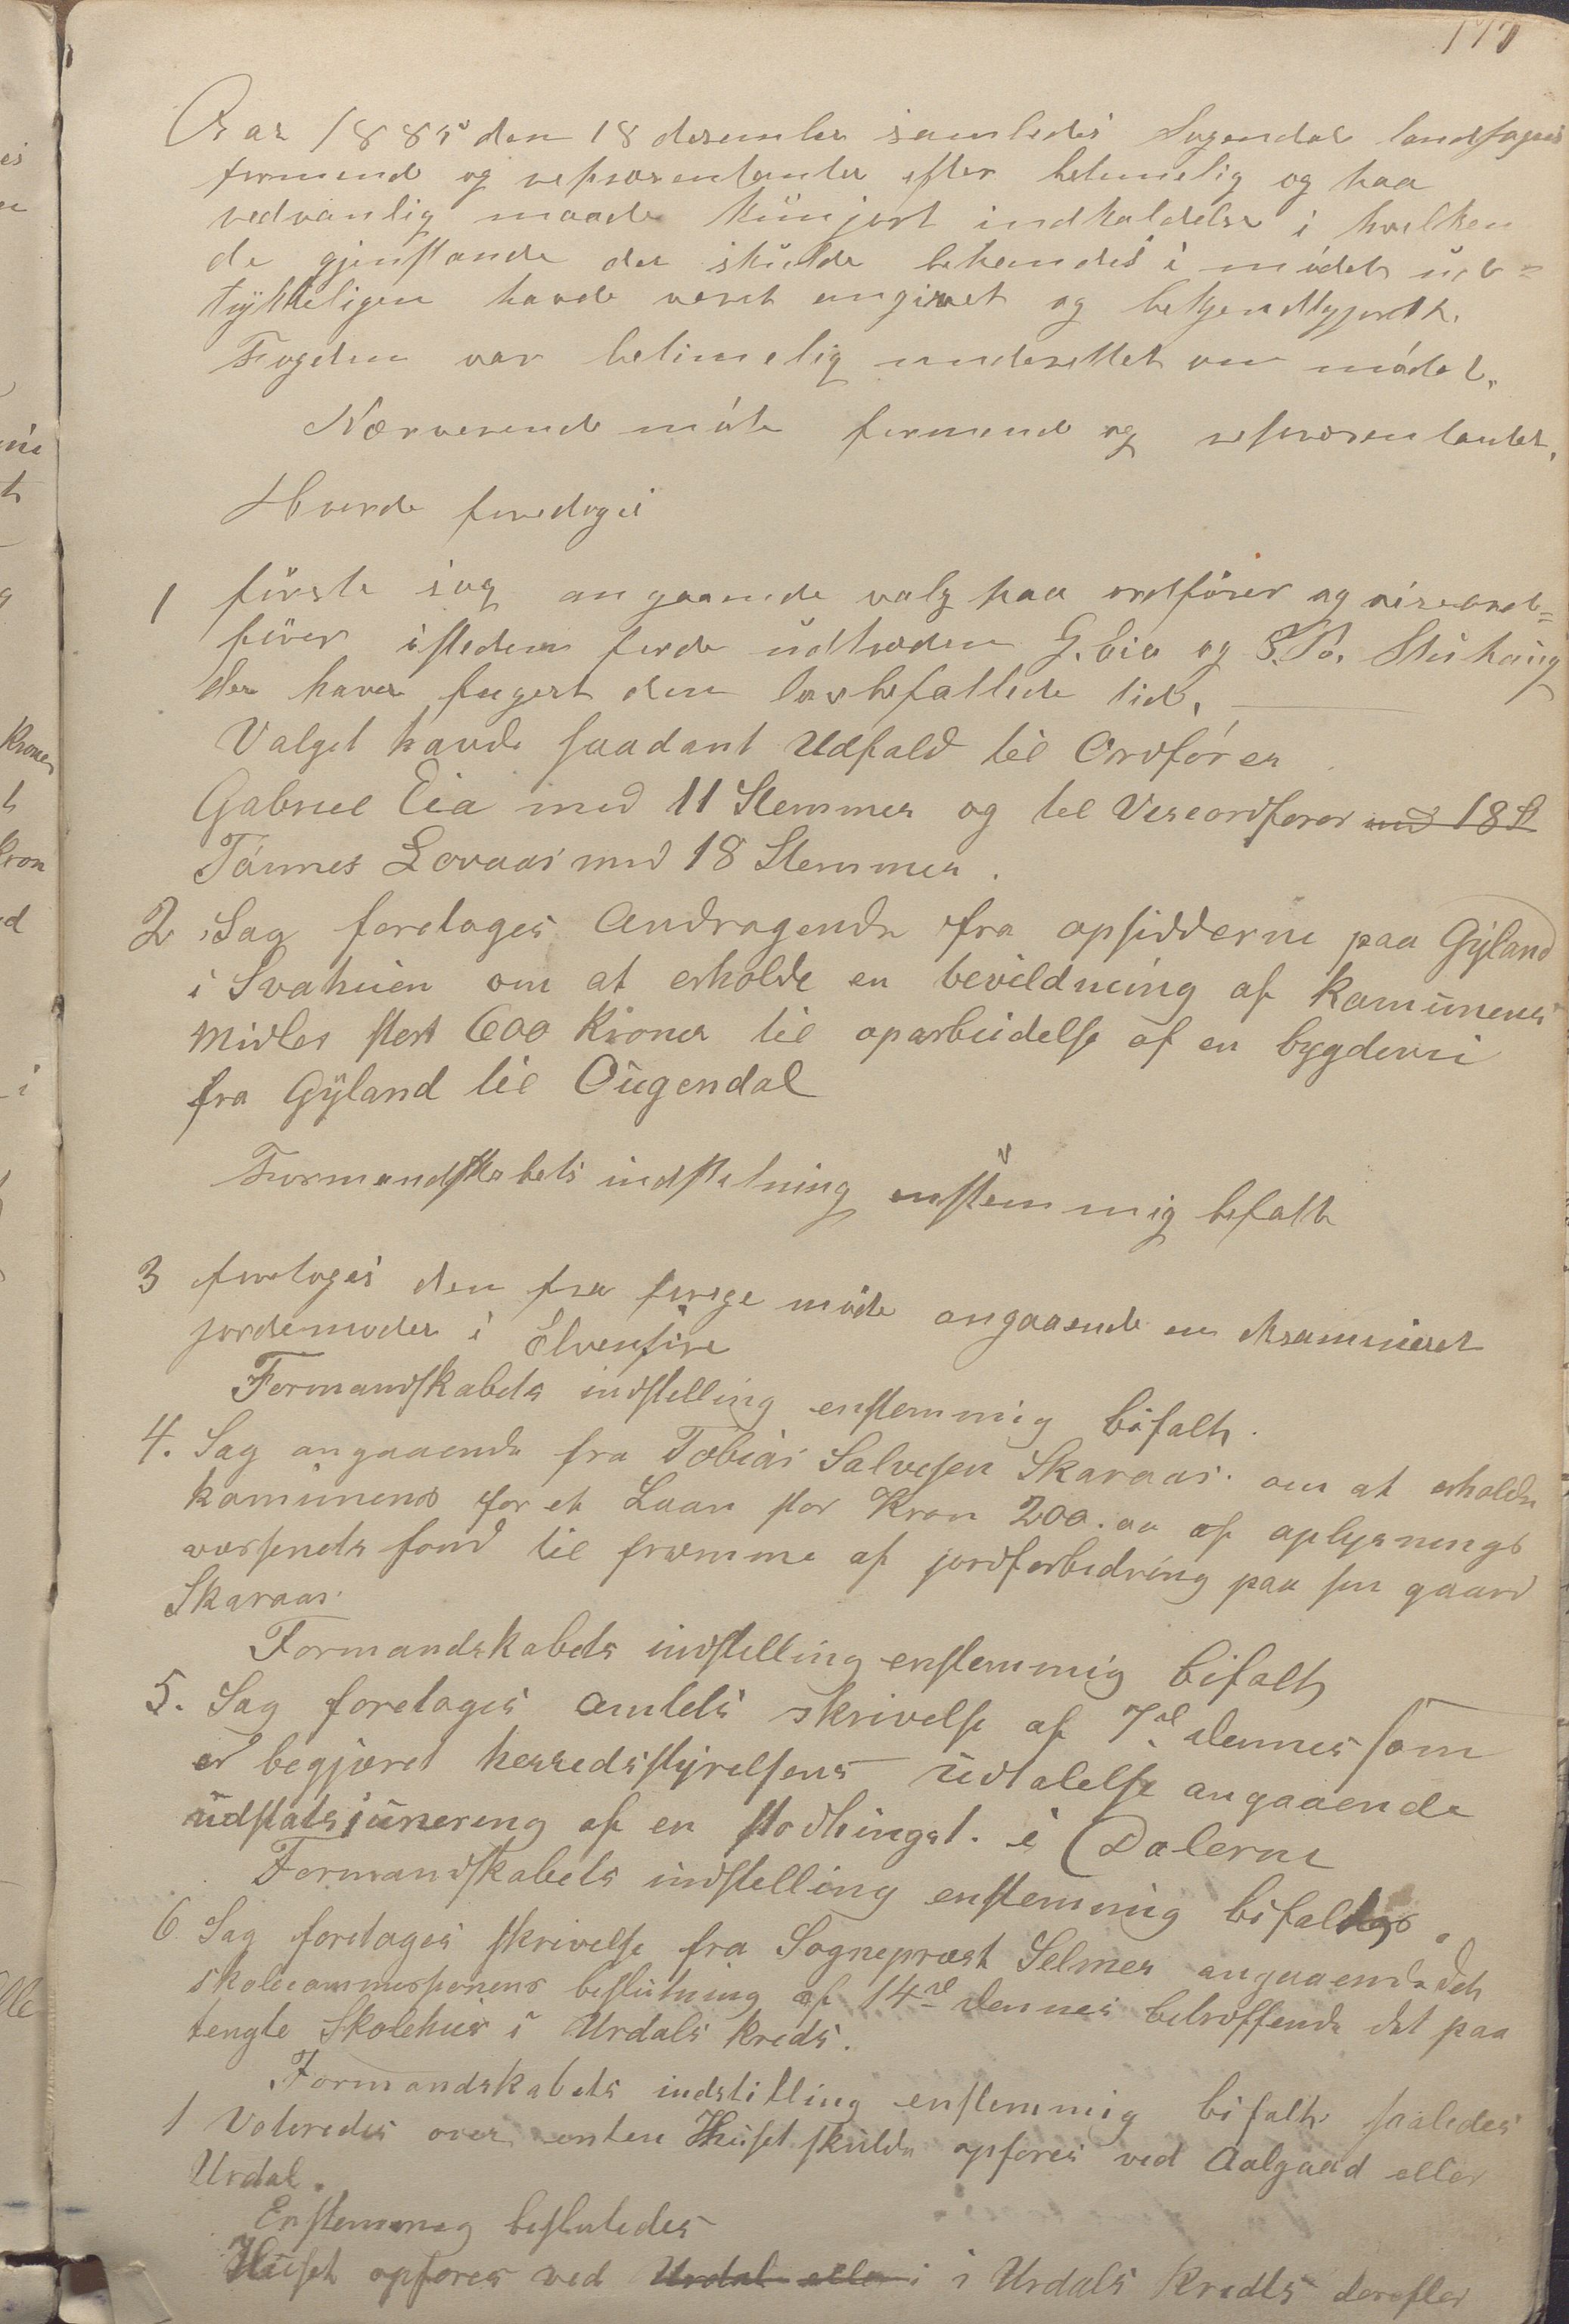 177
Aar 1885 den 18 desember samledes Sogendal landsogns
formend og repræsentanter efter betimelig og paa
vedvanlig maade kunjort indkaldelse i hvilken
de gjenstande der skulde behandes i mödet ud=
trykkeligen havde været angivet og bekjendtgjort.
Fogden var betimelig underettet om mödet.
Nærverende möte formend og repræsentanter.
Hvorde foredoges
1 förste sag angaaende valg paa ordförer og viseord=
förer isteden forde udtræden G. Eia og S. P. Stuhaug
der haver fugert den lovbefallede tid.
Valget havde saadant Udfald til Ordförer
Gabriel Eia med 11 Stemmer og til Viseordforer med 18 St
Tönnes Lovaas med 18 Stemmer.
2 Sag foretoges Andragende fra opsidderne paa Gyland
i Svahuien om at erholde en bevildning af Kamunens
Midler stort 600 Kroner til oparbeidelse af en bygdevei
fra Gyland til Ougendal
Formandskabets indstelning enstemmig befalt
3 foretoges den fra forige möde angaaende en eksamineret
jordemoder i Elvenfire
Formandskabets indstelling enstemmig bifalt.
4. Sag angaaende fra Tobias Salvesen Skaraas. om at erholde
kamunens for et Laan stor Kron 200.00 af oplysnings
væsenets fond til fræmme af jordforbedring paa sin gaard
Skaraas.
Formandskabets indstelling enstemmig bifalt
5. Sag foretoges Amtets skrivelse af 7de dennes som
er begjæret herredsstyrelsens udtalelse angaaende
udstatsjunering af en stodhingst. i Dalerne
Formandskabets indstelling enstemmig bifaldtes.
6 Sag foretoges skrivelse fra Sogneprest Selmer angaaende det
skolecommisionens beslutning af 14de dennes betræffende det paa
tengte Skolehus i Urdals Kreds.
Formandskabets indstitling enstemmig bifalt saaledes
1 Voteredes over enten Huset skulde opfores ved Aalgaad eller
Urdal.
Enstemmeg besluttedes
Huset opfores ved Urdal eller i i Urdals Kredts derefter